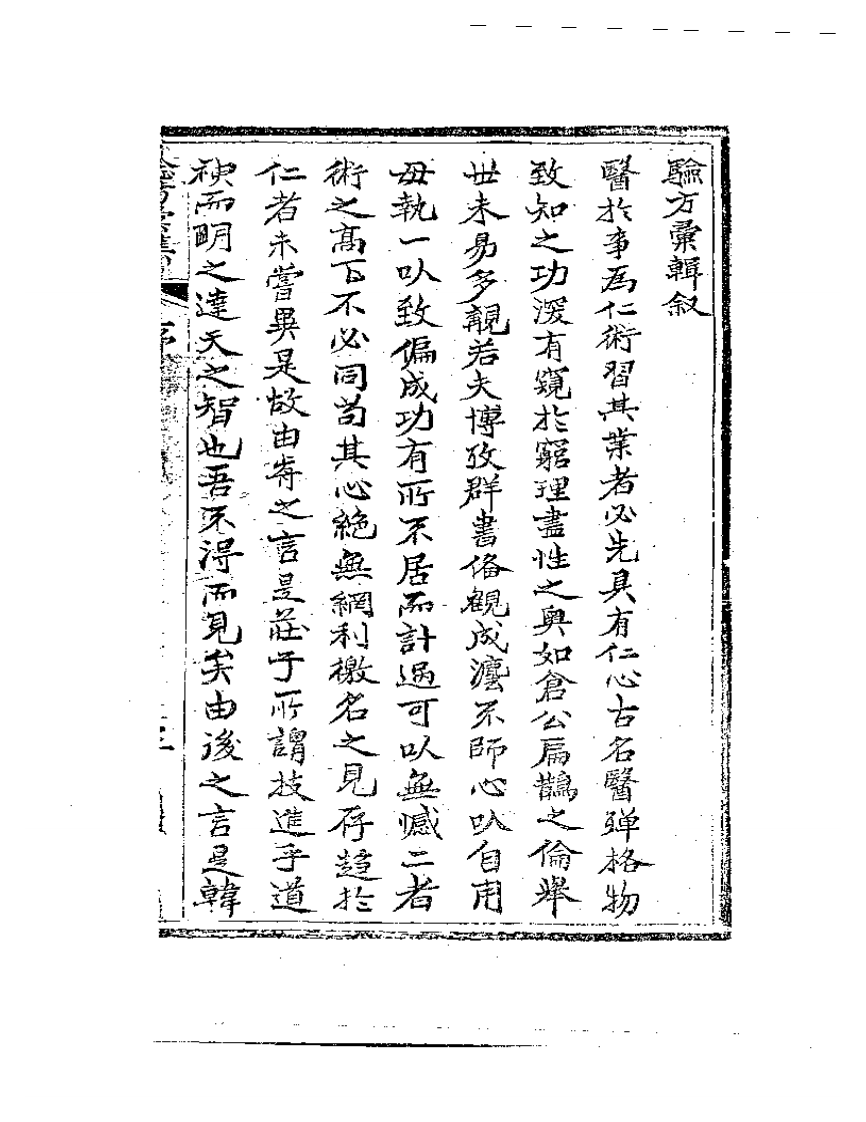 驗方彙輯叙
醫於事爲仁術習其業者必先具有仁心古名醫殫格物
致知之功深有窺於窮理盡性之奥如倉公扁鵲之倫舉
世未易多覯若夫博攷群書俻觀成灋不師心㕥自用
毋執一㕥致偏成功有所不居而計過可㕥無憾二者
術之高下不必同苟其心絶無網利徼名之見存趨於
仁者未嘗異是故由前之言是莊子所謂技進乎道
神而明之達天之智也吾不得而見矣由後之言是韓
序